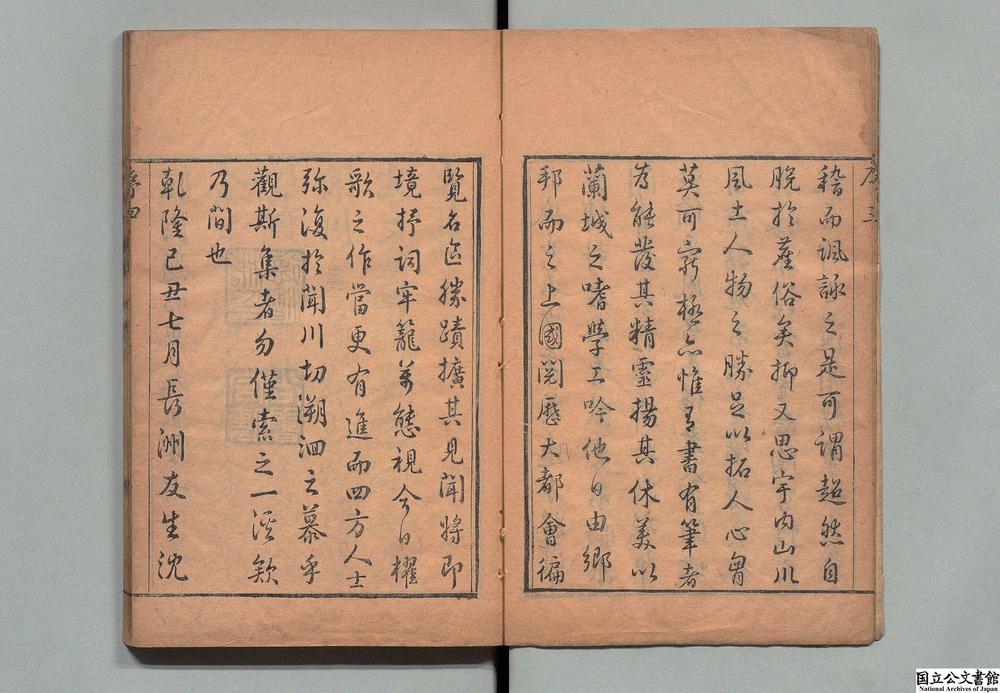 稽而諷詠之是可謂超然自
脫於塵俗矣抑又思宇內山川
風土人物之勝足以拓人心胷
莫可窮極亦惟有書有筆者
為能發其精靈揚其休美以
蘭城之嗜學工吟他日由鄉
邦而之上國閱歷大都會徧
序三
覽名區勝蹟擴其見聞將即
境抒詞牢籠萬態視今日櫂
歌之作當更有進而四方人士
弥復於聞川切溯洄之慕乎
觀斯集者勿僅索之一溪欸
乃間也
乾隆己丑七月長洲友生沈
序四
国立公文書館
National Archives of Japan